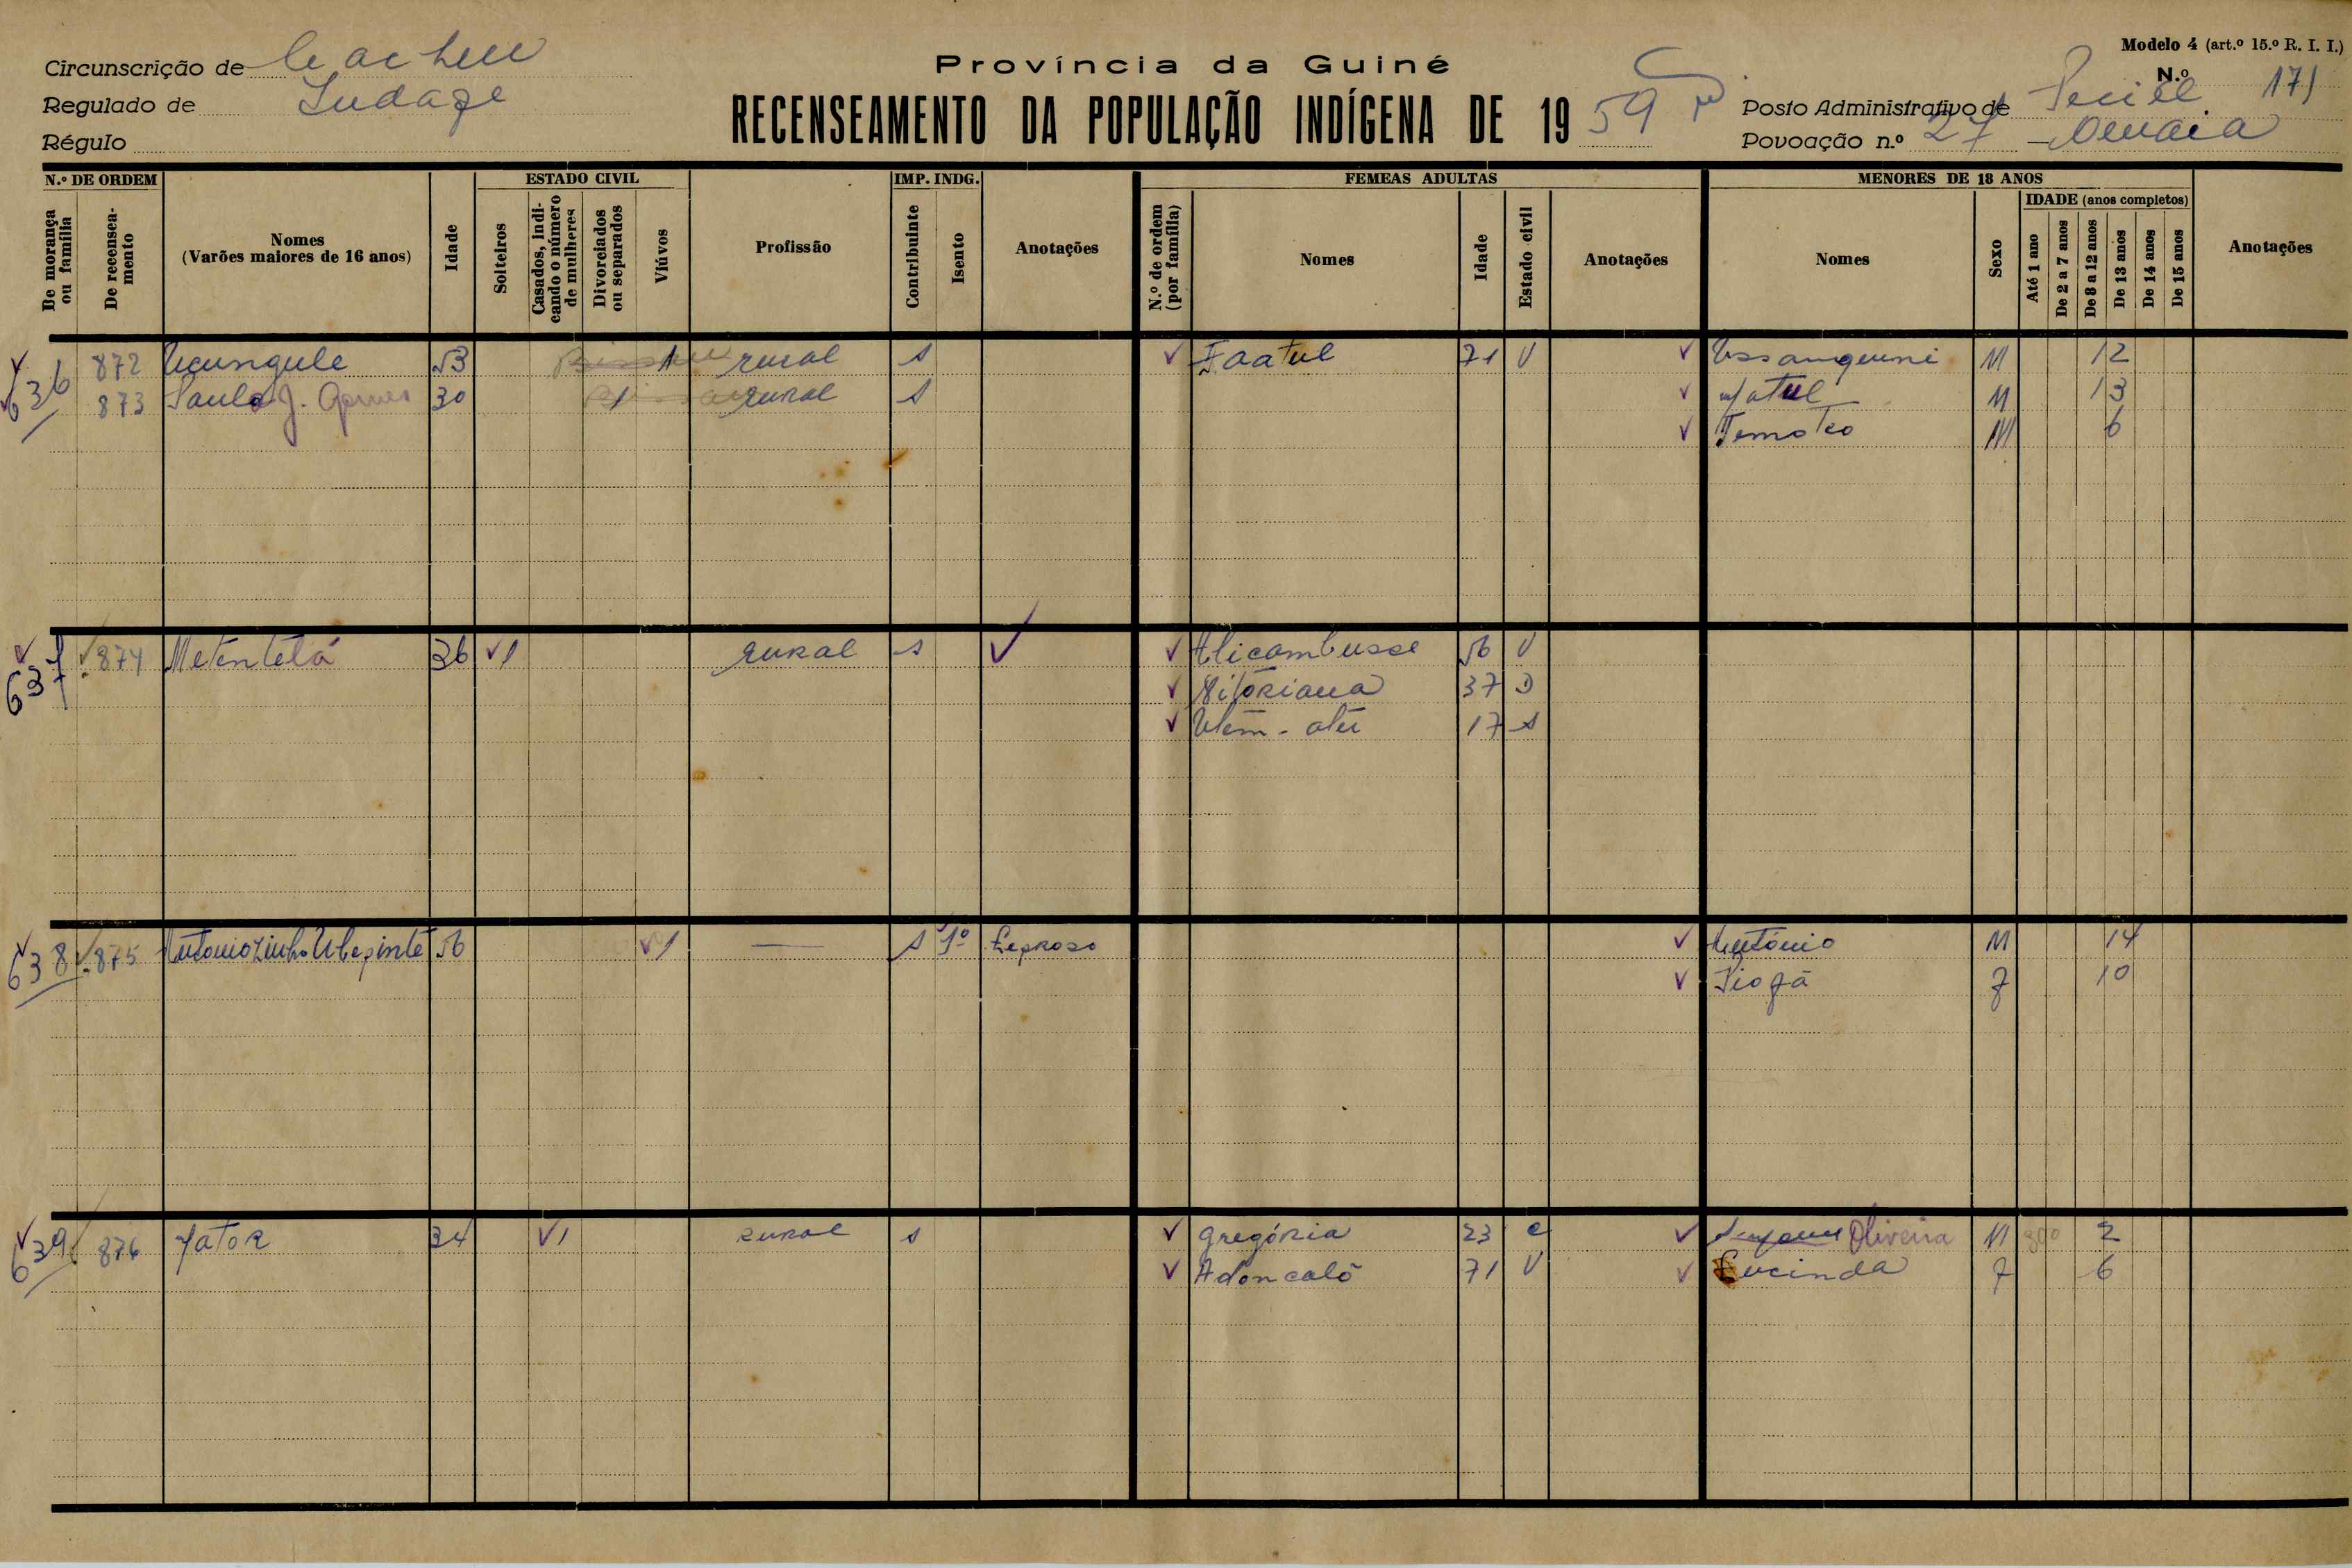 Modelo 4 (art.º 15.º R. I. I.)
Circunscrição de Cacheu
Província da Guiné
N.º 171
Regulado de
RECENSEAMENTO DA POPULAÇÃO INDÍGENA DE 19 59
Posto Administrativo de
Régulo
Povoação n.º 27
N.º DE ORDEM
ESTADO CIVIL
IMP. INDG.
FEMEAS ADULTAS
MENORES DE 18 ANOS
De morança ou família
De recenseamento
Nomes (Varões maiores de 16 anos)
Idade
Solteiros
Casados, indicando o número de mulheres
Divorciados ou separados
Viúvos
Profissão
Contribuinte
Isento
Anotações
N.º de ordem (por família)
Nomes
Idade
Estado civil
Anotações
Nomes
Sexo
IDADE (anos completos)
Até 1 ano
De 2 a 7 anos
De 8 a 12 anos
De 13 anos
De 14 anos
De 15 anos
Anotações
636 872 Ucungule 53 1 rural s Faatul 71 V M 12
873 Paulo J. Gomes 30 1 rural s Jatul M 13
Temoteo M 6
637 874 Metentelá 36 1 rural s Alicambusse 56 V
Vitóriana 37 D
17 s
638 875 Antoniozinho Ubepinte 56 1 — s 1º Leproso António M 14
F 10
639 876 Jator 34 1 rural s Gregória 23 C Oliveira M 2
Adoncaló 71 V Lucinda F 6